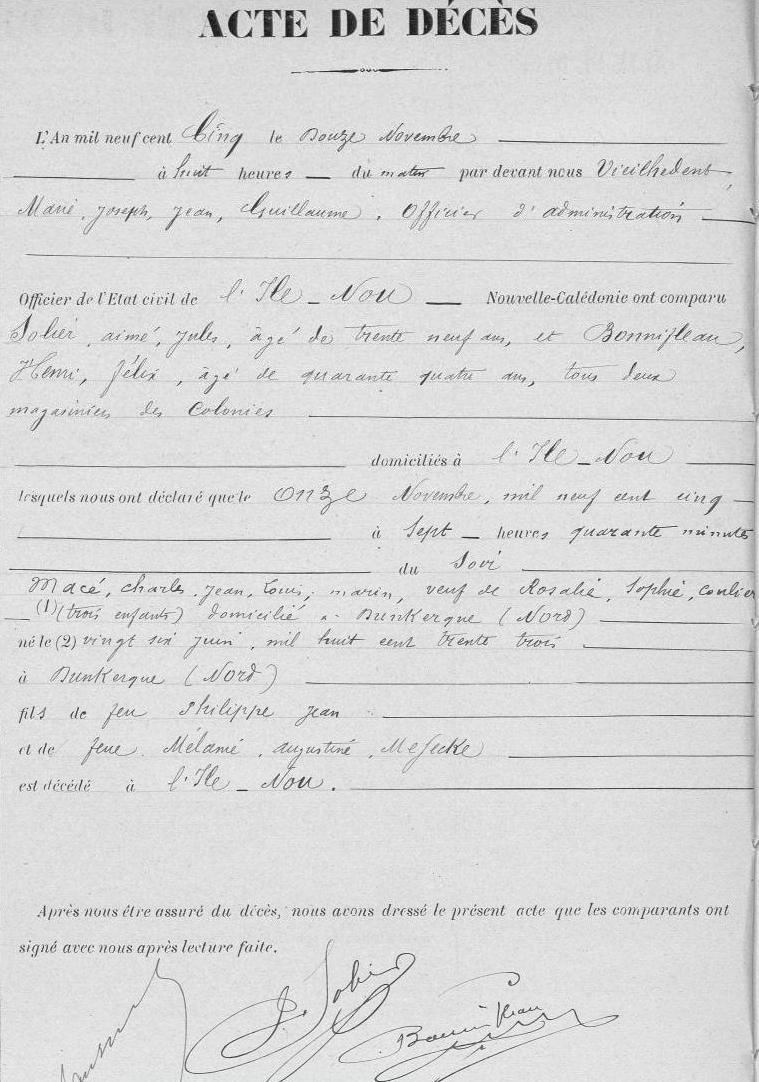 ACTE DE DÉCÈS
L'An mil neuf cent Cinq le Douze Novembre
à huit heures du matin par devant nous Vieilhedent,
Marie, Joseph, Jean, Guillaume, Officier d'administration
Officier de l'Etat civil de l'Ile-Nou Nouvelle-Calédonie ont comparu
Solier, aimé, Jules, âgé de trente neuf ans, et Bonnifleau,
Henri, félix, âgé de quarante quatre ans, tous deux
magasiniers des Colonies
domiciliés à l'Ile-Nou
lesquels nous ont déclaré que le onze Novembre, mil neuf cent cinq
à Sept heures quarante minutes
du Soir
Macé, Charles, Jean, Louis, marin, veuf de Rosalie, Sophie, Coulier
(1) (trois enfants) domicilié à Dunkerque (Nord)
né le (2) vingt six juin, mil huit cent trente trois
à Dunkerque (Nord)
fils de feu Philippe Jean
et de feue Mélanie, augustine,
est décédé à l'Ile-Nou.
Après nous être assuré du décès, nous avons dressé le présent acte que les comparants ont
signé avec nous après lecture faite.
J. Solier
Bonnifleau